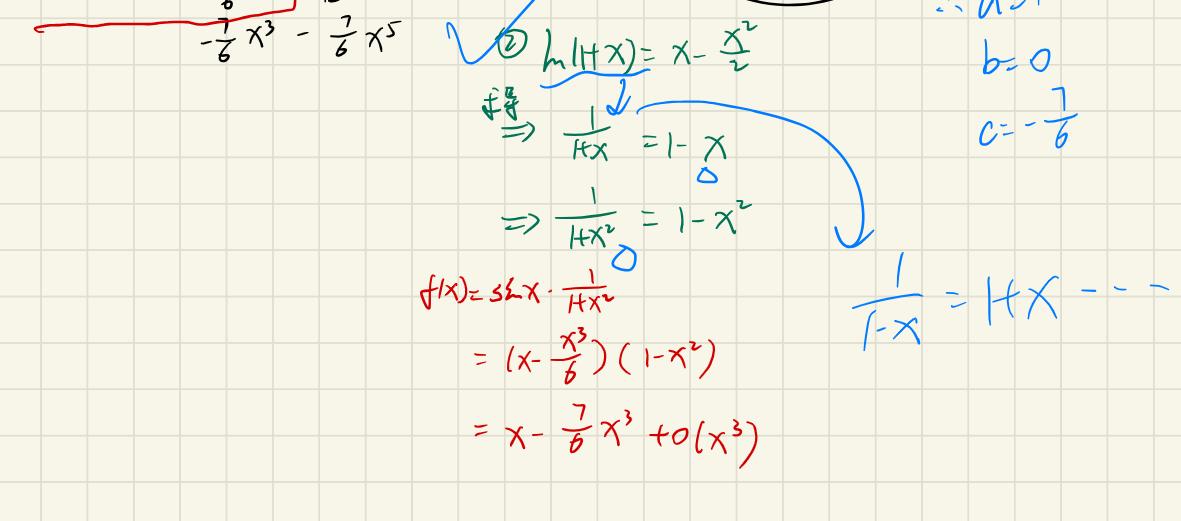 -7/6 x³ - 7/6 x⁵
② ln(1+x) = x - x²/2
求导 ⇒ 1/(1+x) = 1 - x
⇒ 1/(1+x²) = 1 - x²
f(x) = sinx · 1/(1+x²)
= (x - x³/6)(1 - x²)
= x - 7/6 x³ + o(x³)
b = 0
c = - 7/6
1/(1-x) = 1+x - - -